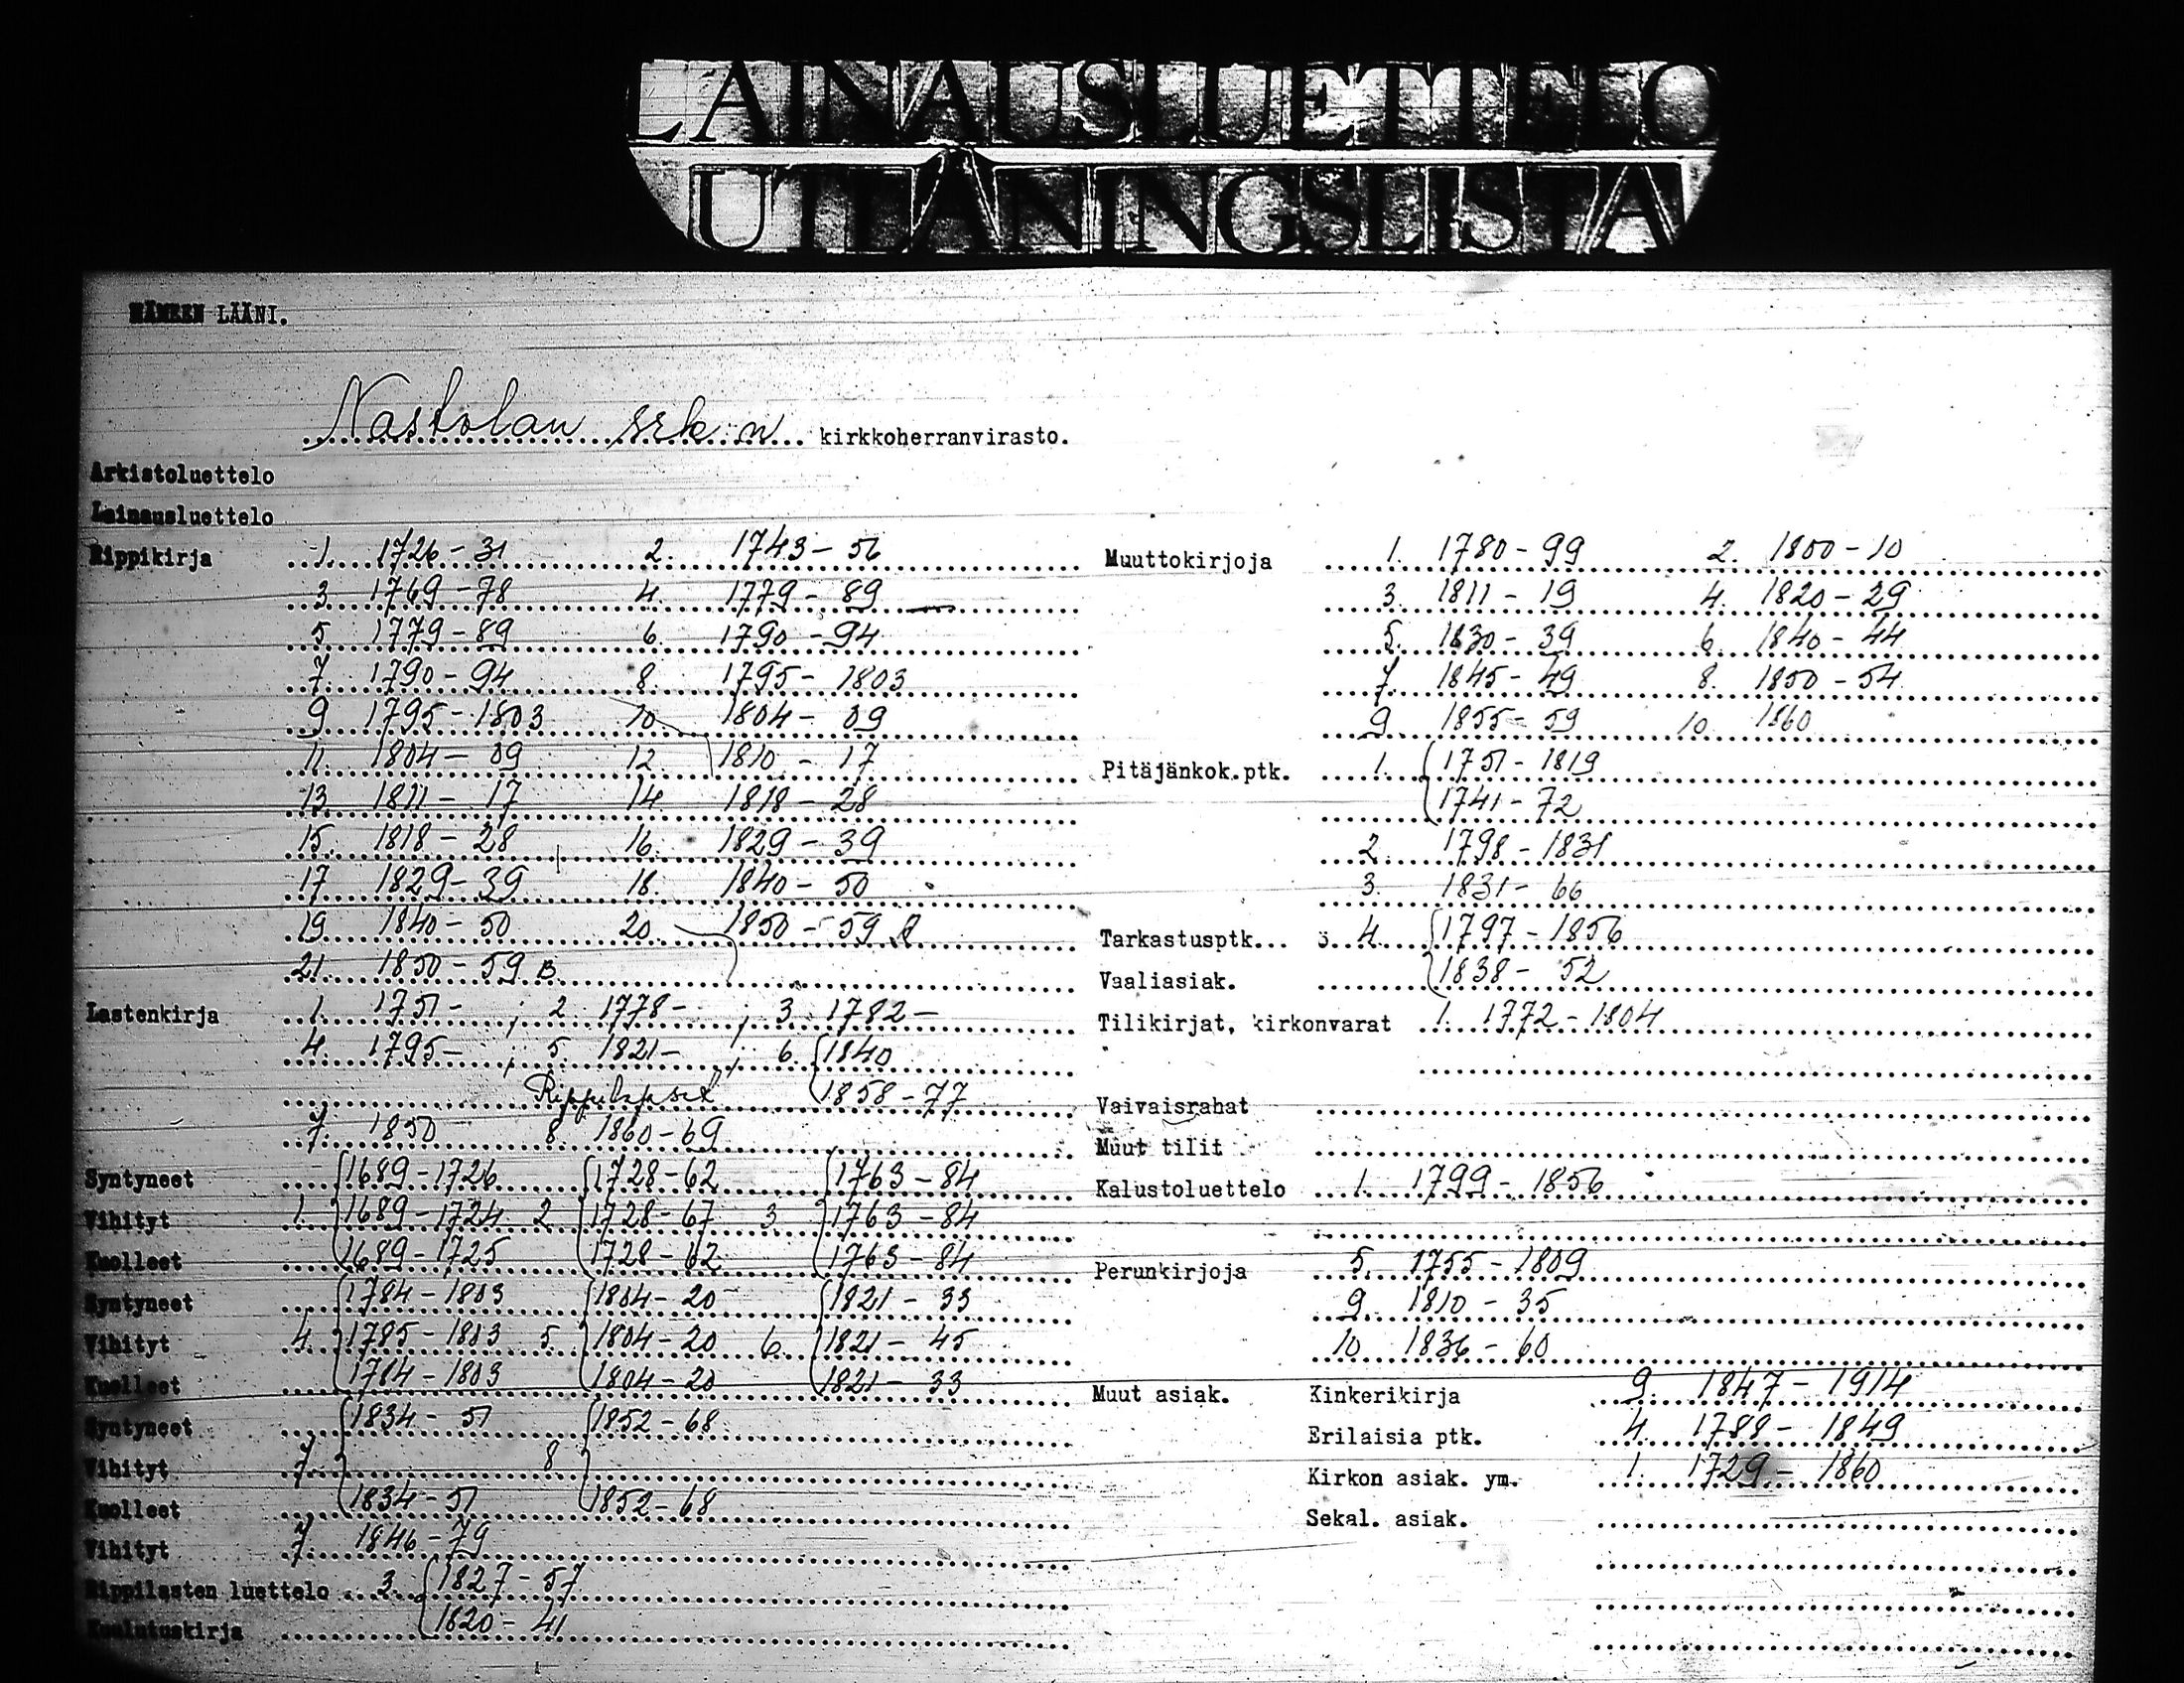 LAINAUSLUETTELO
UTLÅNINGSLISTA
HÄMEEN LÄÄNI.
Nastolan srk n kirkkoherranvirasto.
Arkistoluettelo
Lainausluettelo
Rippikirja 1. 1726-31 2. 1743-56
3 1769-78 4. 1779-89
5 1779-89 6. 1790-94
7. 1790-94 8. 1795-1803
9 1795-1803 10 1804-09
11. 1804-09 12. 1810-17
13 1811-17 14. 1818-28
15. 1818-28 16. 1829-39
17 1829-39 18. 1840-50
19 1840-50 20. 1850-59 A
21. 1850-59 B
Lastenkirja 1. 1751- ; 2 1778- ; 3. 1782-
4. 1795- ; 5. 1821- ; 6. 1840
Rippilapset 1858-77
7. 1850 8. 1860-69
Syntyneet 1689-1726 1728-62 1763-84
Vihityt 1. 1689-1724 2 1728-67 3 1763-84
Kuolleet 1689-1725 1728-62 1763-84
Syntyneet 1784-1803 1804-20 1821-33
Vihityt 4. 1785-1803 5 1804-20 6. 1821-45
Kuolleet 1784-1803 1804-20 1821-33
Syntyneet 1834-51 1852-68
Vihityt 7. 8
Kuolleet 1834-51 1852-68
Vihityt 7. 1846-79
Rippilasten luettelo 3. 1827-57
Kuulutuskirja 1820-41
Muuttokirjoja 1. 1780-99 2. 1800-10
3. 1811-19 4. 1820-29
5. 1830-39 6. 1840-44
7. 1845-49 8. 1850-54
9 1855-59 10 1860
Pitäjänkok.ptk. 1. 1751-1819
1741-72
2. 1798-1831
3. 1831-66
Tarkastusptk... ö 4. 1797-1856
Vaaliasiak. 1838-52
Tilikirjat, kirkonvarat 1. 1772-1804
Vaivaisrahat
Muut tilit
Kalustoluettelo 1. 1799-1856
Perunkirjoja 5. 1755-1809
9. 1810-35
10 1836-60
Muut asiak. Kinkerikirja 9. 1847-1914
Erilaisia ptk. 4. 1788-1849
Kirkon asiak. ym. 1. 1729-1860
Sekal. asiak.